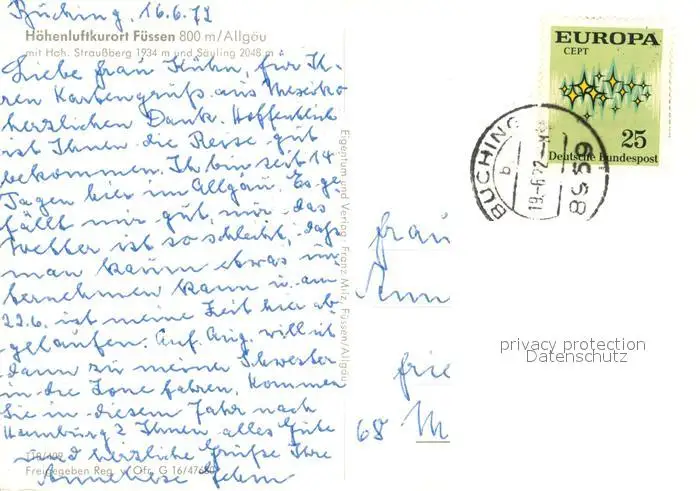 Buching, 16.6.72
Höhenluftkurort Füssen 800 m/Allgäu
mit Hoh. Straußberg 1934 m und Säuling 2048 m
Liebe Frau Kühn, für Ih-
ren Kartengruß aus Mexiko
herzlichen Dank. Hoffentlich
ist Ihnen die Reise gut
bekommen. Ich bin seit 14
Tagen hier im Allgäu. Es ge-
fällt mir gut, nur das
Wetter ist so schlecht, daß
man kaum etwas un-
ternehmen kann u. am
22.6. ist meine Zeit hier ab-
gelaufen. Anf. Aug. will ich
dann zu meiner Schwester
in die Zone fahren. Kommen
Sie in diesem Jahr nach
Hamburg? Ihnen alles Gute
und herzliche Grüße Ihre
Anneliese
Freigegeben Reg. v. Ofr. G 16/476
Eigentum und Verlag Franz Milz, Füssen/Allgäu
EUROPA
CEPT
25
Deutsche Bundespost
BUCHING
b
19.-6.72
8959
Frau
privacy protection
Datenschutz
68 M